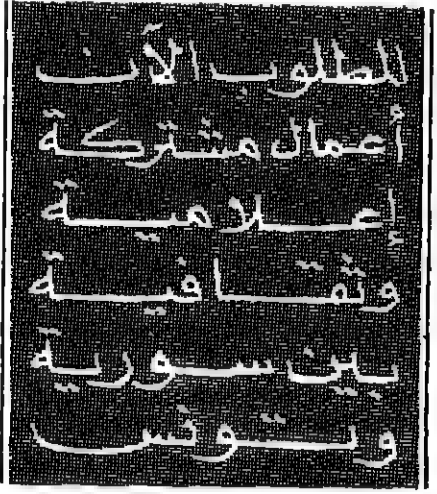 المطلوب الآن
أعمال مشتركة
إعلامية
وثقافية
بين سورية
وتونس